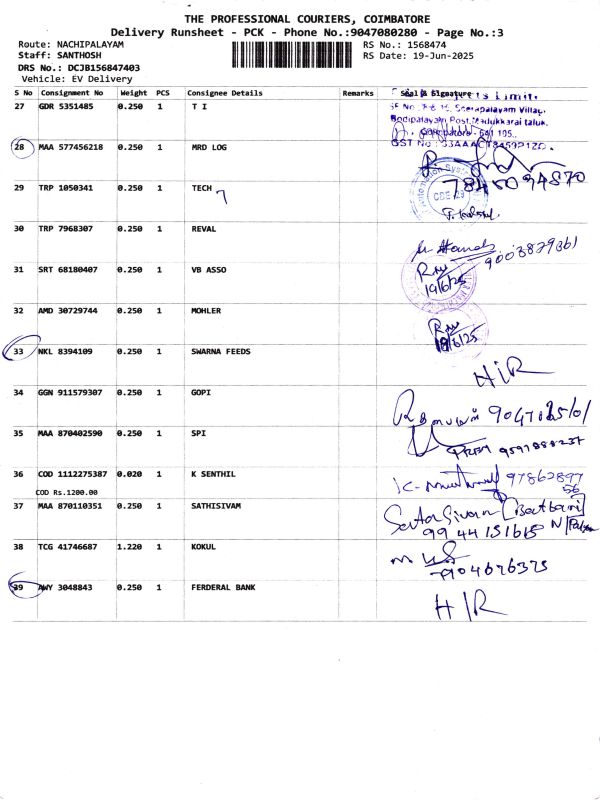 THE PROFESSIONAL COURIERS, COIMBATORE
Delivery Runsheet - PCK - Phone No.:9047080280 - Page No.:3
Route: NACHIPALAYAM
Staff: SANTHOSH
DRS No.: DCJB156847403
Vehicle: EV Delivery
RS No.: 1568474
RS Date: 19-Jun-2025
S No Consignment No Weight PCS Consignee Details Remarks Seal & Signature
27 GDR 5351485 0.250 1 T I
28 MAA 577456218 0.250 1 MRD LOG
GST No : 33AAACT8459P1ZO.
7845094870
29 TRP 1050341 0.250 1 TECH 7
CBE - 23
30 TRP 7968307 0.250 1 REVAL
9003879361
31 SRT 68180407 0.250 1 VB ASSO
19/6/25
32 AMD 30729744 0.250 1 MOHLER
19/6/25
33 NKL 8394109 0.250 1 SWARNA FEEDS
H/R
34 GGN 911579307 0.250 1 GOPI
35 MAA 870402590 0.250 1 SPI
9597888237
36 COD 1112275387 0.020 1 K SENTHIL
COD Rs.1200.00
9786289756
37 MAA 870110351 0.250 1 SATHISIVAM
9944151615
38 TCG 41746687 1.220 1 KOKUL
7904676375
39 AWY 3048843 0.250 1 FERDERAL BANK
H/R